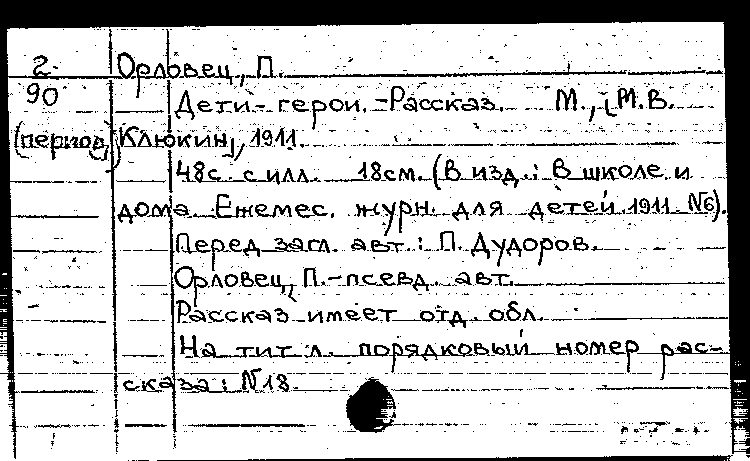 2 Орловец, П.
90 Дети-герои. -Рассказ. М., [М.В.
(период) Клюкин], 1911.
48с. с илл. 18см. (В изд.: В школе и
дома. Ежемес. журн. для детей 1911 №6).
Перед загл. авт.: П. Дудоров.
Орловец, П.-псевд. авт.
Рассказ имеет отд. обл.
На тит л. порядковый номер рас-
сказа: №18.